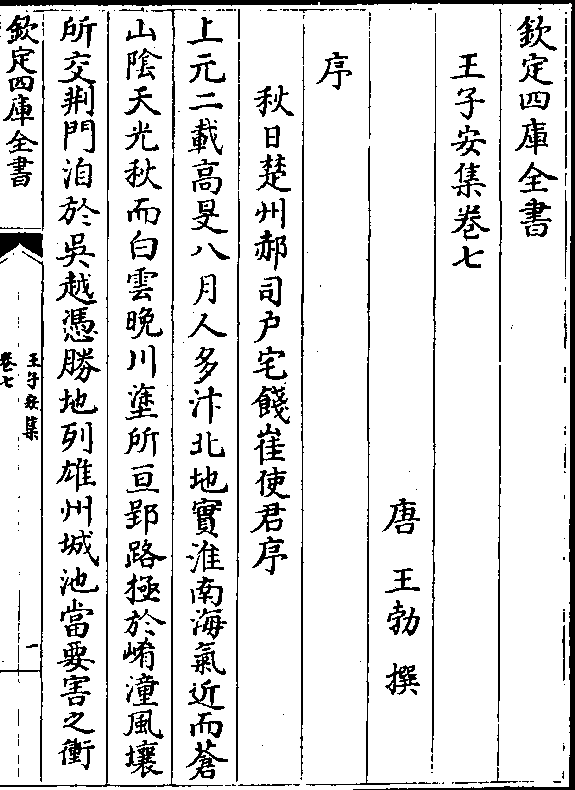 欽定四庫全書
王子安集卷七
唐 王勃 撰
序
秋日楚州郝司户宅餞崔使君序
上元二載高旻八月人多汴北地實淮南海氣近而蒼
山陰天光秋而白雲晚川塗所亘郢路極於崤潼風壤
所交荆門洎於吳越憑勝地列雄州城池當要害之衝
欽定四庫全書
王子安集
卷七
一